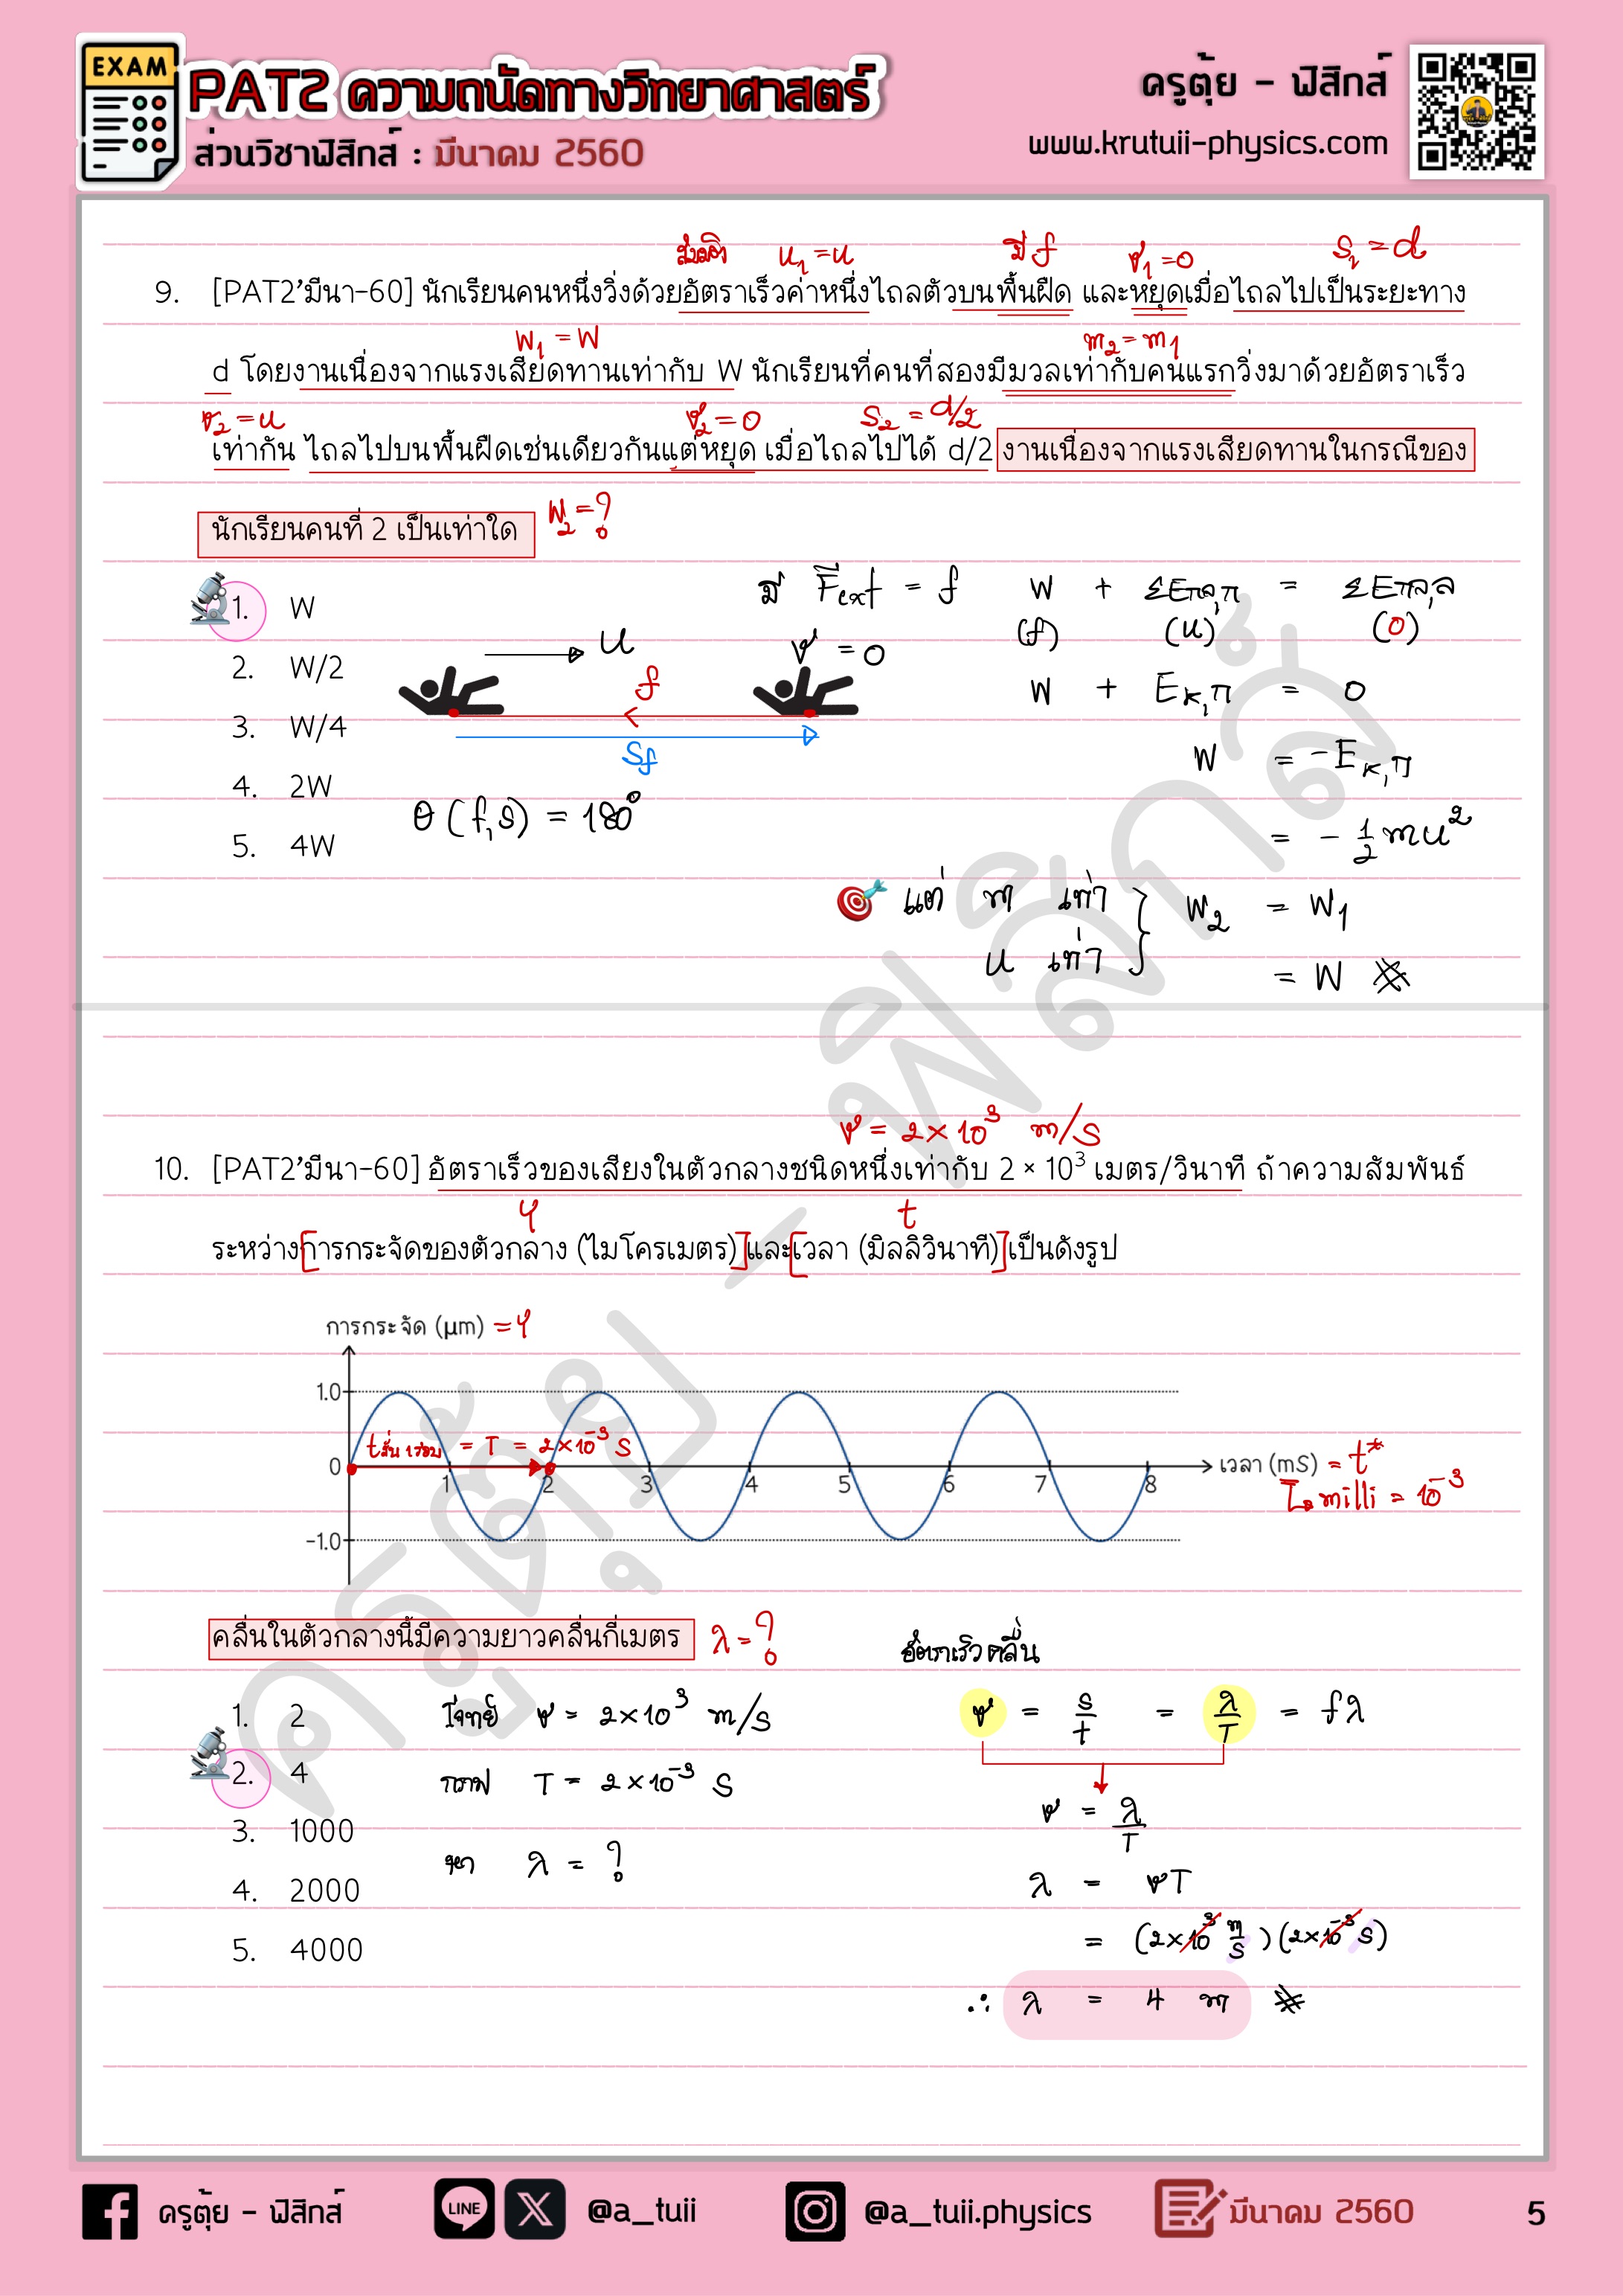 EXAM
PAT2 ความถนัดทางวิทยาศาสตร์
ส่วนวิชาฟิสิกส์ : มีนาคม 2560
ครูตุ้ย - ฟิสิกส์
www.krutuii-physics.com
u₁ = u
มี f
v₁ = 0
S₁ = d
9. [PAT2'มีนา-60] นักเรียนคนหนึ่งวิ่งด้วยอัตราเร็วค่าหนึ่งไถลตัวบนพื้นฝืด และหยุดเมื่อไถลไปเป็นระยะทาง
W₁ = W
m₂ = m₁
d โดยงานเนื่องจากแรงเสียดทานเท่ากับ W นักเรียนที่คนที่สองมีมวลเท่ากับคนแรกวิ่งมาด้วยอัตราเร็ว
v₂ = u
v₂ = 0
S₂ = d/2
เท่ากัน ไถลไปบนพื้นฝืดเช่นเดียวกันแต่หยุด เมื่อไถลไปได้ d/2 งานเนื่องจากแรงเสียดทานในกรณีของ
นักเรียนคนที่ 2 เป็นเท่าใด
W₂ = ?
1. W
2. W/2
3. W/4
4. 2W
5. 4W
u
v = 0
f
Sf
θ (f,s) = 180°
มี Fext = f
W + ΣEกล,ก = ΣEกล,ล
(f) (u) (0)
W + Eκ,ก = 0
W = -Eκ,ก
= - 1/2 mu²
แต่ m เท่า
u เท่า
W₂ = W₁
= W
v = 2×10³ m/s
10. [PAT2'มีนา-60] อัตราเร็วของเสียงในตัวกลางชนิดหนึ่งเท่ากับ 2 × 10³ เมตร/วินาที ถ้าความสัมพันธ์
y
t
ระหว่างการกระจัดของตัวกลาง (ไมโครเมตร) และเวลา (มิลลิวินาที) เป็นดังรูป
การกระจัด (µm) = y
1.0
0
-1.0
tสั่น 1 รอบ = T = 2×10⁻³ s
1 2 3 4 5 6 7 8
เวลา (mS) = t*
milli = 10⁻³
คลื่นในตัวกลางนี้มีความยาวคลื่นกี่เมตร
λ = ?
1. 2
2. 4
3. 1000
4. 2000
5. 4000
โจทย์ v = 2×10³ m/s
กราฟ T = 2×10⁻³ s
หา λ = ?
อัตราเร็วคลื่น
v = s/t = λ/T = fλ
v = λ/T
λ = vT
= (2×10³ m/s)(2×10⁻³ s)
∴ λ = 4 m
ครูตุ้ย - ฟิสิกส์
ครูตุ้ย - ฟิสิกส์
LINE
@a_tuii
@a_tuii.physics
มีนาคม 2560
5